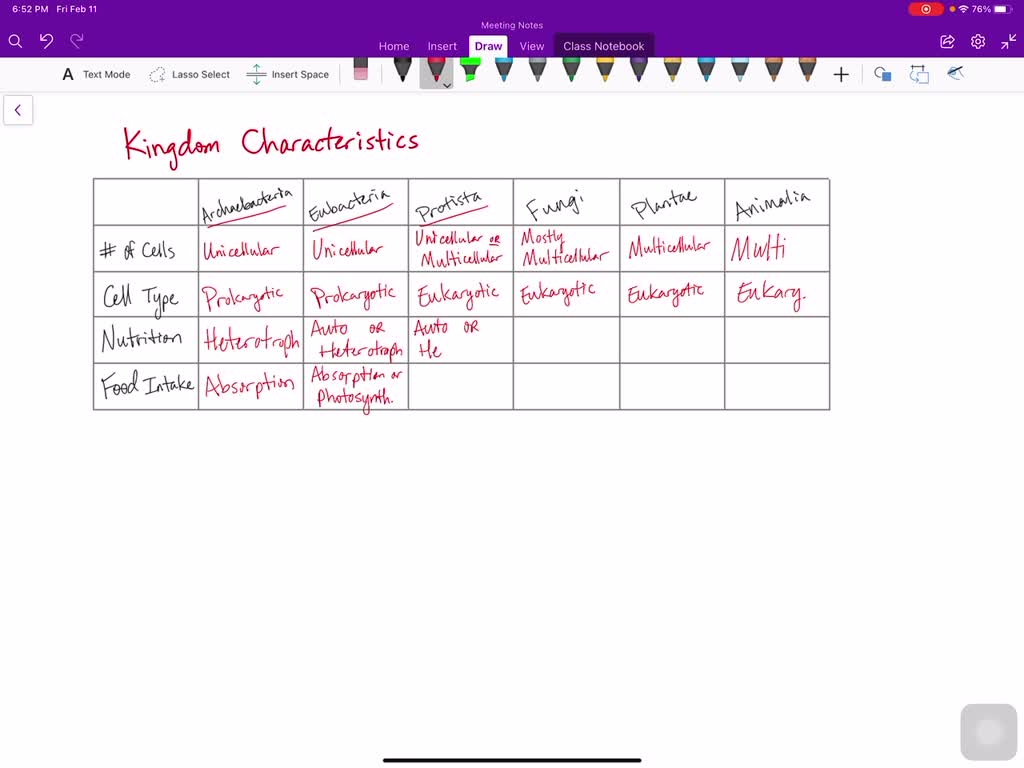 6:52 PM Fri Feb 11
76%
Meeting Notes
Home Insert Draw View Class Notebook
A Text Mode Lasso Select Insert Space
Kingdom Characteristics
Archaebacteria Eubacteria Protista Fungi Plantae Animalia
# of Cells Unicellular Unicellular Unicellular or Multicellular Mostly Multicellular Multicellular Multi
Cell Type Prokaryotic Prokaryotic Eukaryotic Eukaryotic Eukaryotic Eukary.
Nutrition Heterotroph Auto OR Heterotroph Auto OR He
Food Intake Absorption Absorption or Photosynth.